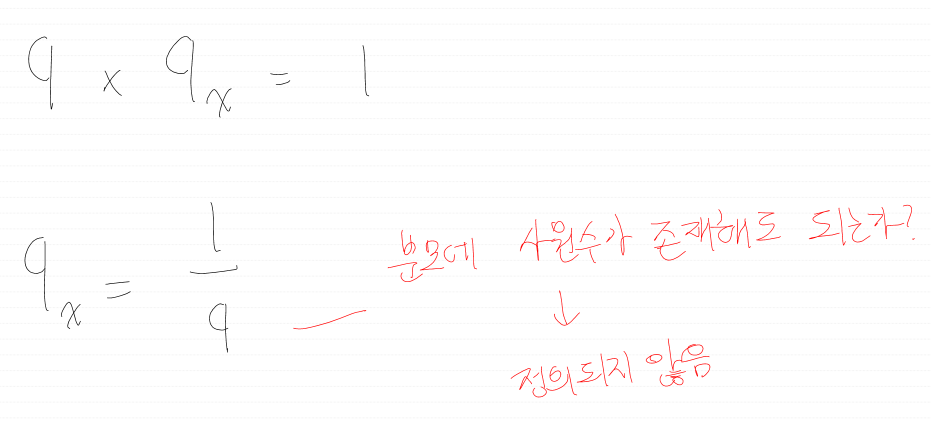 q × q_x = 1
q_x = 1/q
분모에 사원수가 존재해도 되는가?
↓
정의되지 않음